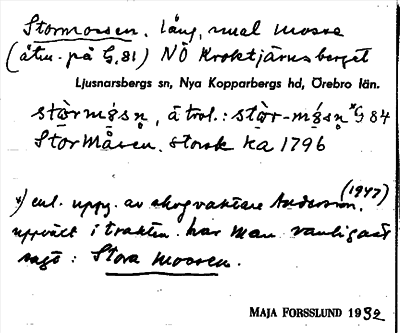 Stormossen. lång, smal mosse
(åtm. på G. 81) NÖ Kroktjärnsberget
Ljusnarsbergs sn, Nya Kopparbergs hd, Örebro län.
G 84
Stor Måsen. storsk ka 1796
x) enl. uppg. av skogvaktare Andersson, (1947)
uppväxt i trakten har man vanligast
sagt: Stora mossen.
MAJA FORSSLUND 1932